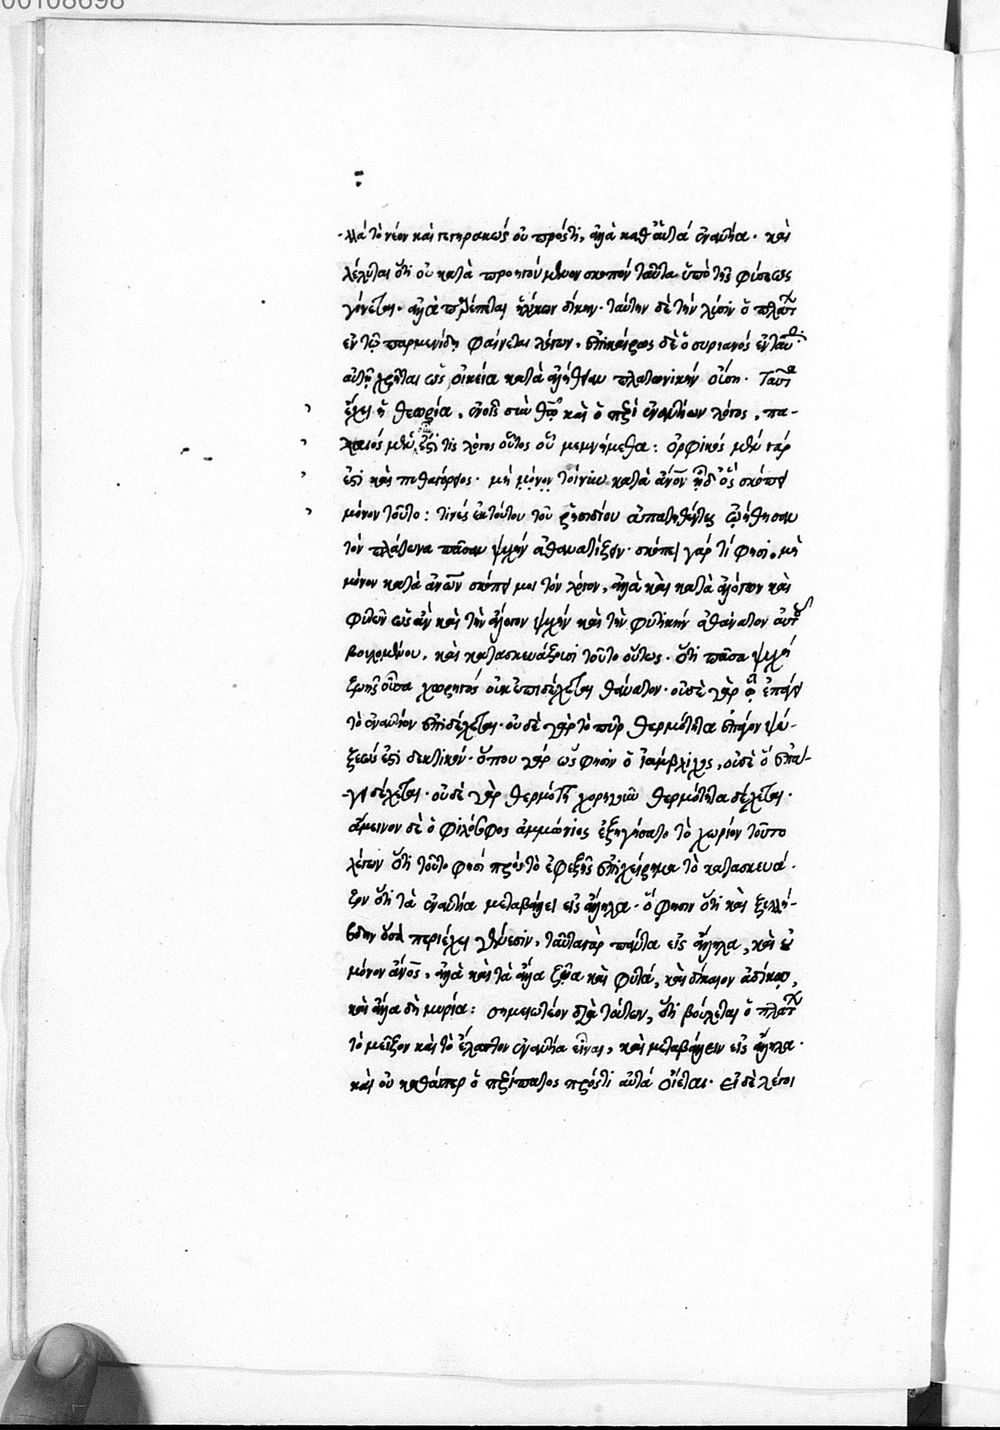 00108698
-λλά τὸ νέον καὶ γεγηρακώς οὐ πρόστι, ἀλλὰ καθ' αὑτά ἐναντία. καὶ
λέλυται ὅτι οὐ κατὰ προηγούμενον σκοπόν ταῦτα ὑπὸ τῆς φύσεως
γίνεται. ἀλλὰ δίκην. ταύτην δὲ τὴν λύσιν ὁ πλάτ
ἐν τῷ παρμενίδῃ φαίνεται λέγων. ἐπικαίρως δὲ ὁ συριανός ἐνταῦθα
αὐτῇ χρῆται ὡς οἰκεία κατὰ ἀλήθειαν πλατωνικήν οὖσῃ. ταῦτα
ἔχει ἡ θεωρία, ἐν οἷς σὺν θεῷ καὶ ὁ περὶ ἐναντίων λόγος. πα-
λαιός μὲν οὖν ἐστί τις λόγος οὗτος οὗ μεμνήμεθα: ὀρφικός μὲν γάρ
ἐστι καὶ πυθαγόρειος. μὴ μόνον τοίνυν κατὰ ἀνων ἠδ' ὃς σκόπει
μόνον τοῦτο: τινές ἐκ τούτου τοῦ ῥησιδίου ἀπατηθέντες ᾠήθησαν
τὸν πλάτωνα πᾶσαν ψυχήν ἀθανατίζειν. σκόπει γάρ τί φησι. μὴ
μόνον κατὰ ἀνων σκόπει μοι τὸν λόγον, ἀλλὰ καὶ κατὰ ἀλόγων καὶ
φυτῶν ὡς ἂν καὶ τὴν ἄλογον ψυχήν καὶ τὴν φυτικήν ἀθάνατον αὐτοῦ
βουλομένου. καὶ κατασκευάζουσι τοῦτο οὕτως. ὅτι πᾶσα ψυχή
ζωῆς οὖσα χορηγός οὐκ ἐπιδέχεται θάνατον. οὐδὲ γὰρ ᾧ ἐπάγει
τὸ ἐναντίον ἐπιδέχεται. οὐδὲ γὰρ τὸ πῦρ θερμότητα ἐπάγον ψύ-
ξεώς ἐστι δεκτικόν. ὅπου γάρ ὥς φησιν ὁ ἰάμβλιχος, οὐδὲ ὅ ἐπά-
-γει δέχεται. οὐδὲ γὰρ θερμότητος χορηγοῦν θερμότητα δέχεται.
ἄμεινον δὲ ὁ φιλόσοφος ἀμμώνιος ἐξηγήσατο τὸ χωρίον τοῦτο
λέγων ὅτι τοῦτο φησί πρὸς τὸ ἐφεξῆς ἐπιχείρημα τὸ κατασκευά-
ζον ὅτι τὰ ἐναντία μεταβάλλει εἰς ἄλληλα. ὅ φησιν ὅτι καὶ ξυλλή-
βδην ὅσα περιέχει γένεσιν. ταῦτα γάρ πάντα εἰς ἄλληλα, καὶ οὐ
μόνον ἄνος, ἀλλὰ καὶ τὰ ἄλλα ζῷα καὶ φυτά, καὶ δίκαιον ἀδίκῳ,
καὶ ἄλλα δὴ μυρία: σημειωτέον διὰ τούτων, ὅτι βούλεται ὁ πλάτ
τὸ μεῖζον καὶ τὸ ἔλαττον ἐναντία εἶναι, καὶ μεταβάλλειν εἰς ἄλληλα.
καὶ οὐ καθάπερ ὁ περίπατος πρόστι αὐτά οἴεται. εἰ δὲ λέγοι